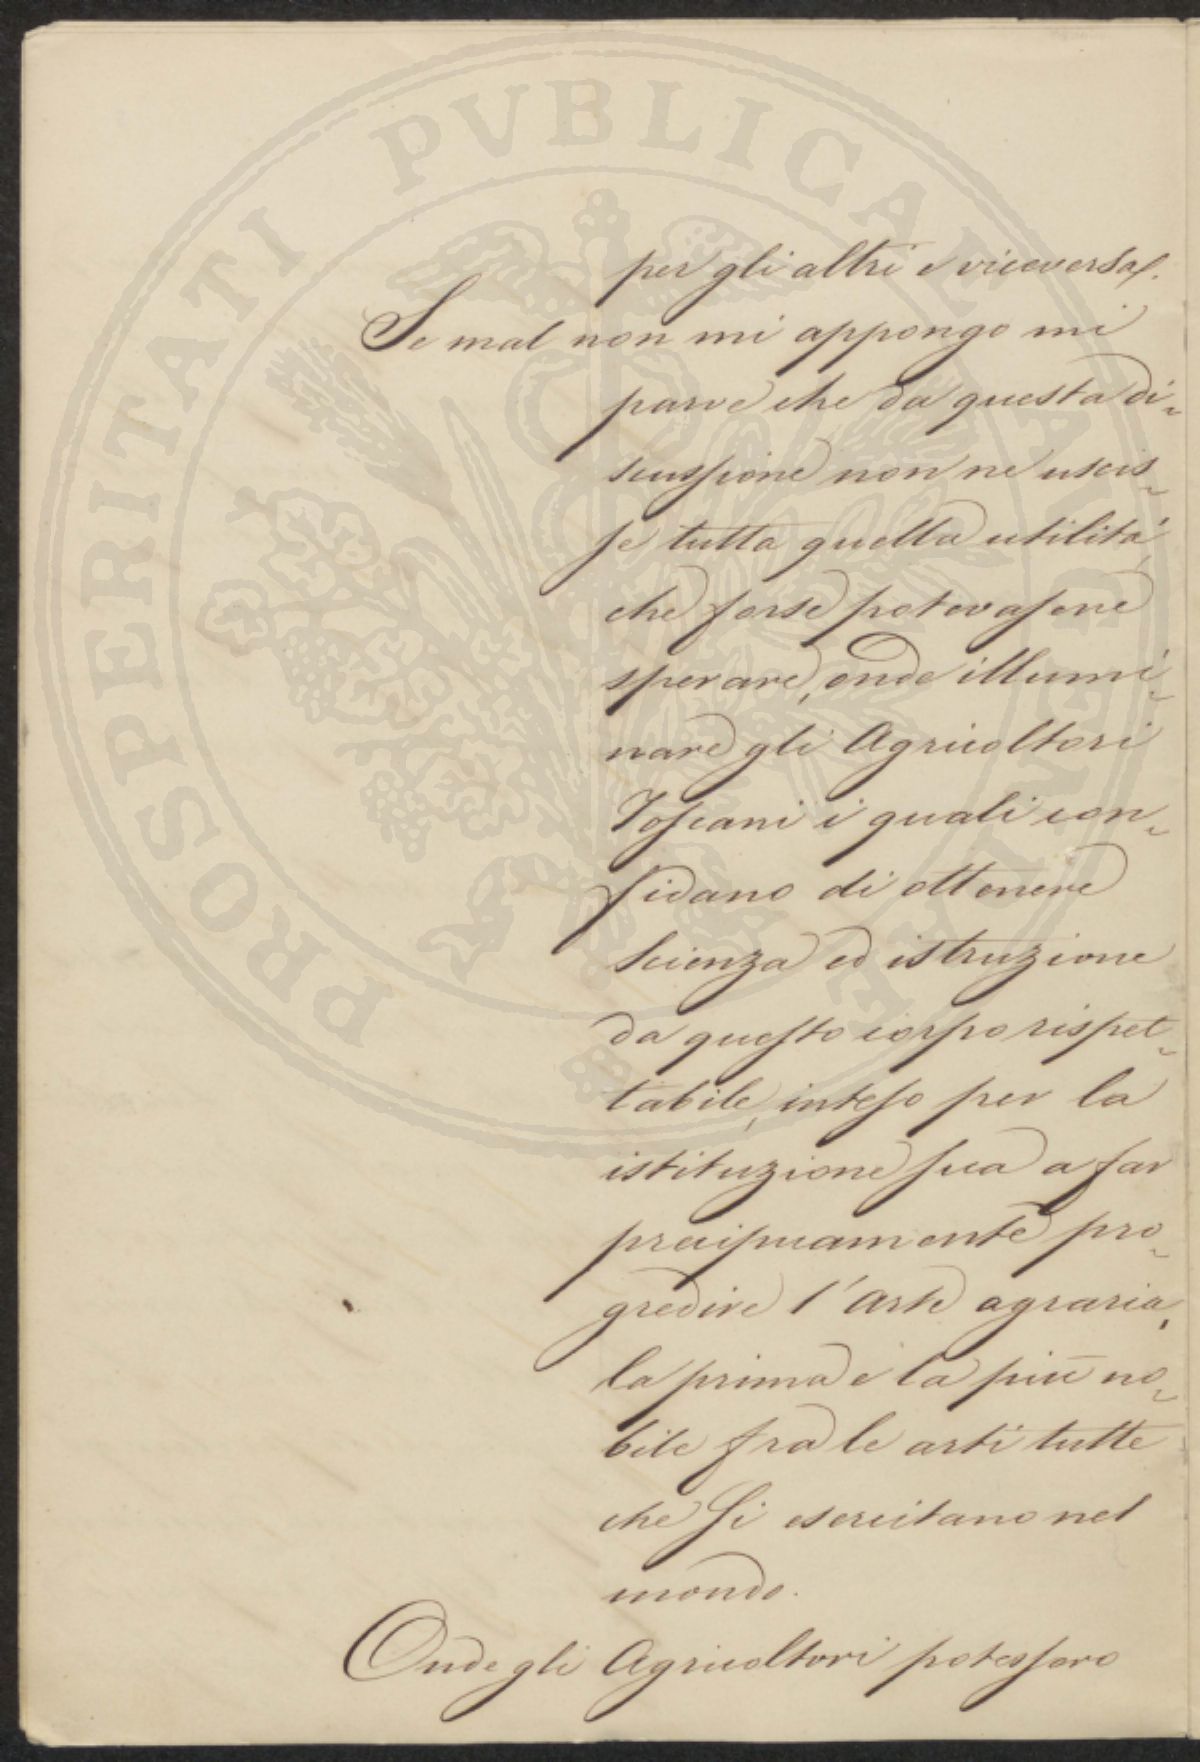 PROSPERITATI PVBLICAE AVGENDAE
per gli altri e viceversa.
Se mal non mi appongo mi
parve che da questa di-
scussione non ne uscis-
se tutta quella utilità
che forse potevasene
sperare, onde illumi-
nare gli Agricoltori
Toscani i quali con-
fidano di ottenere
Scienza ed istruzione
da questo corpo rispet-
tabile, inteso per la
istituzione sua a far
precipuamente pro-
gredire l'arte agraria,
la prima e la più no-
bile fra le arti tutte
che si esercitano nel
mondo.
Onde gli Agricoltori potessero